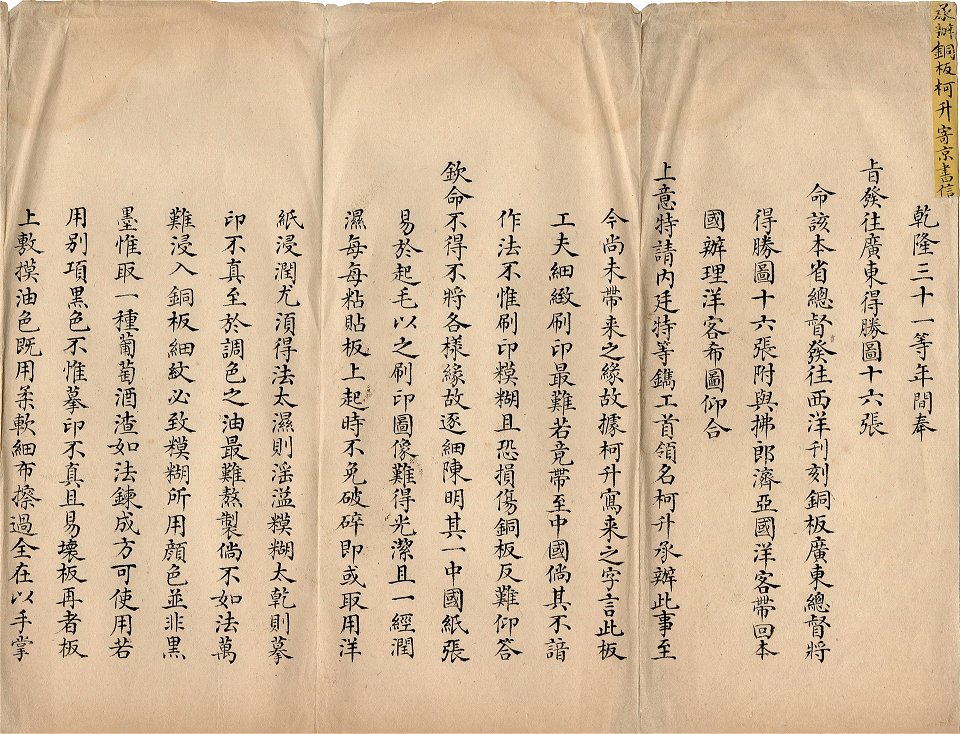 承辦銅板柯升寄京書信
乾隆三十一等年間奉
旨發往廣東得勝圖十六張
命該本省總督發往西洋刊刻銅板廣東總督將
得勝圖十六張附與拂郎濟亞國洋客帶回本
國辦理洋客布圖仰合
上意特請內廷特等鐫工首領名柯升承辦此事至
今尚未帶来之緣故據柯升寫来之字言此板
工夫細緻刷印最難若竟帶至中國倘其不諳
作法不惟刷印糢糊且恐損傷銅板反難仰答
欽命不得不將各樣緣故逐細陳明其一中國紙張
易於起毛以之刷印圖像難得光潔且一經潤
濕每每粘貼板上起時不免破碎即或取用洋
紙浸潤尤湏得法太濕則滛溢糢糊太乾則摹
印不真至於調色之油最難熬製倘不如法萬
難浸入銅板細紋必致糢糊所用顔色並非黑
墨惟取一種葡萄酒渣如法鍊成方可使用若
用別項黑色不惟摹印不真且易壊板再者板
上敷摸油色既用柔軟細布擦過全在以手掌